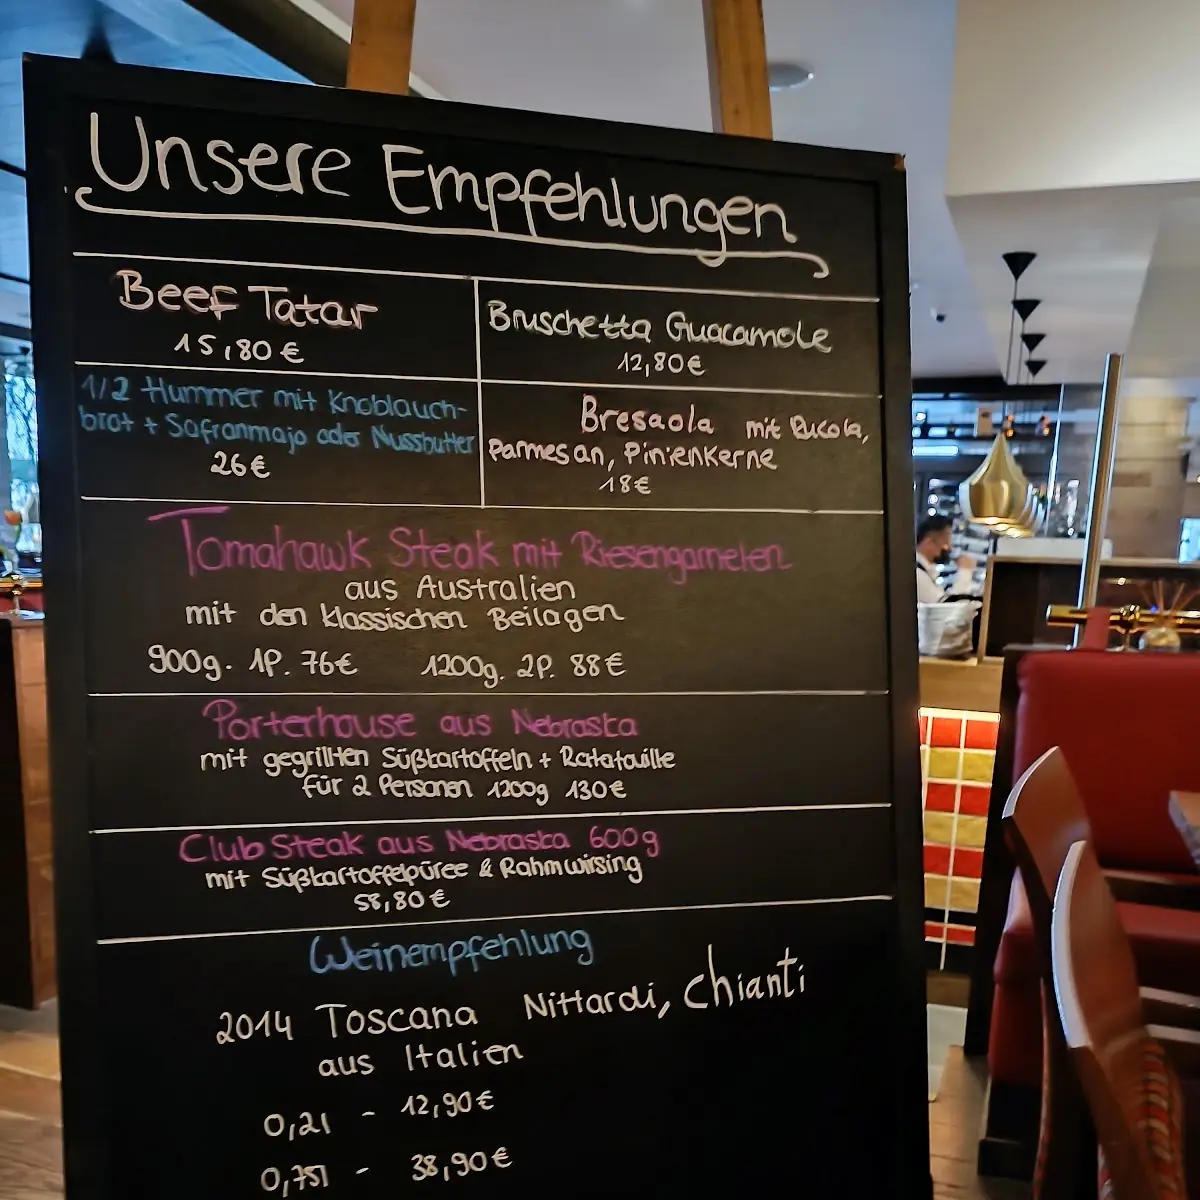 Unsere Empfehlungen
Beef Tatar
15,80 €
Bruschetta Guacamole
12,80€
1/2 Hummer mit Knoblauch-
brot + Safranmajo oder Nussbutter
26€
Bresaola mit Rucola,
Parmesan, Pinienkerne
18€
Tomahawk Steak mit Riesengarnelen
aus Australien
mit den klassischen Beilagen
900g. 1P. 76€ 1200g. 2P. 88€
Porterhouse aus Nebraska
mit gegrillten Süßkartoffeln + Ratatouille
für 2 Personen 1200g 130€
Club Steak aus Nebraska 600g
mit Süßkartoffelpüree & Rahmwirsing
58,80€
Weinempfehlung
2014 Toscana Nittardi, Chianti
aus Italien
0,2l - 12,90€
0,75l - 38,90€